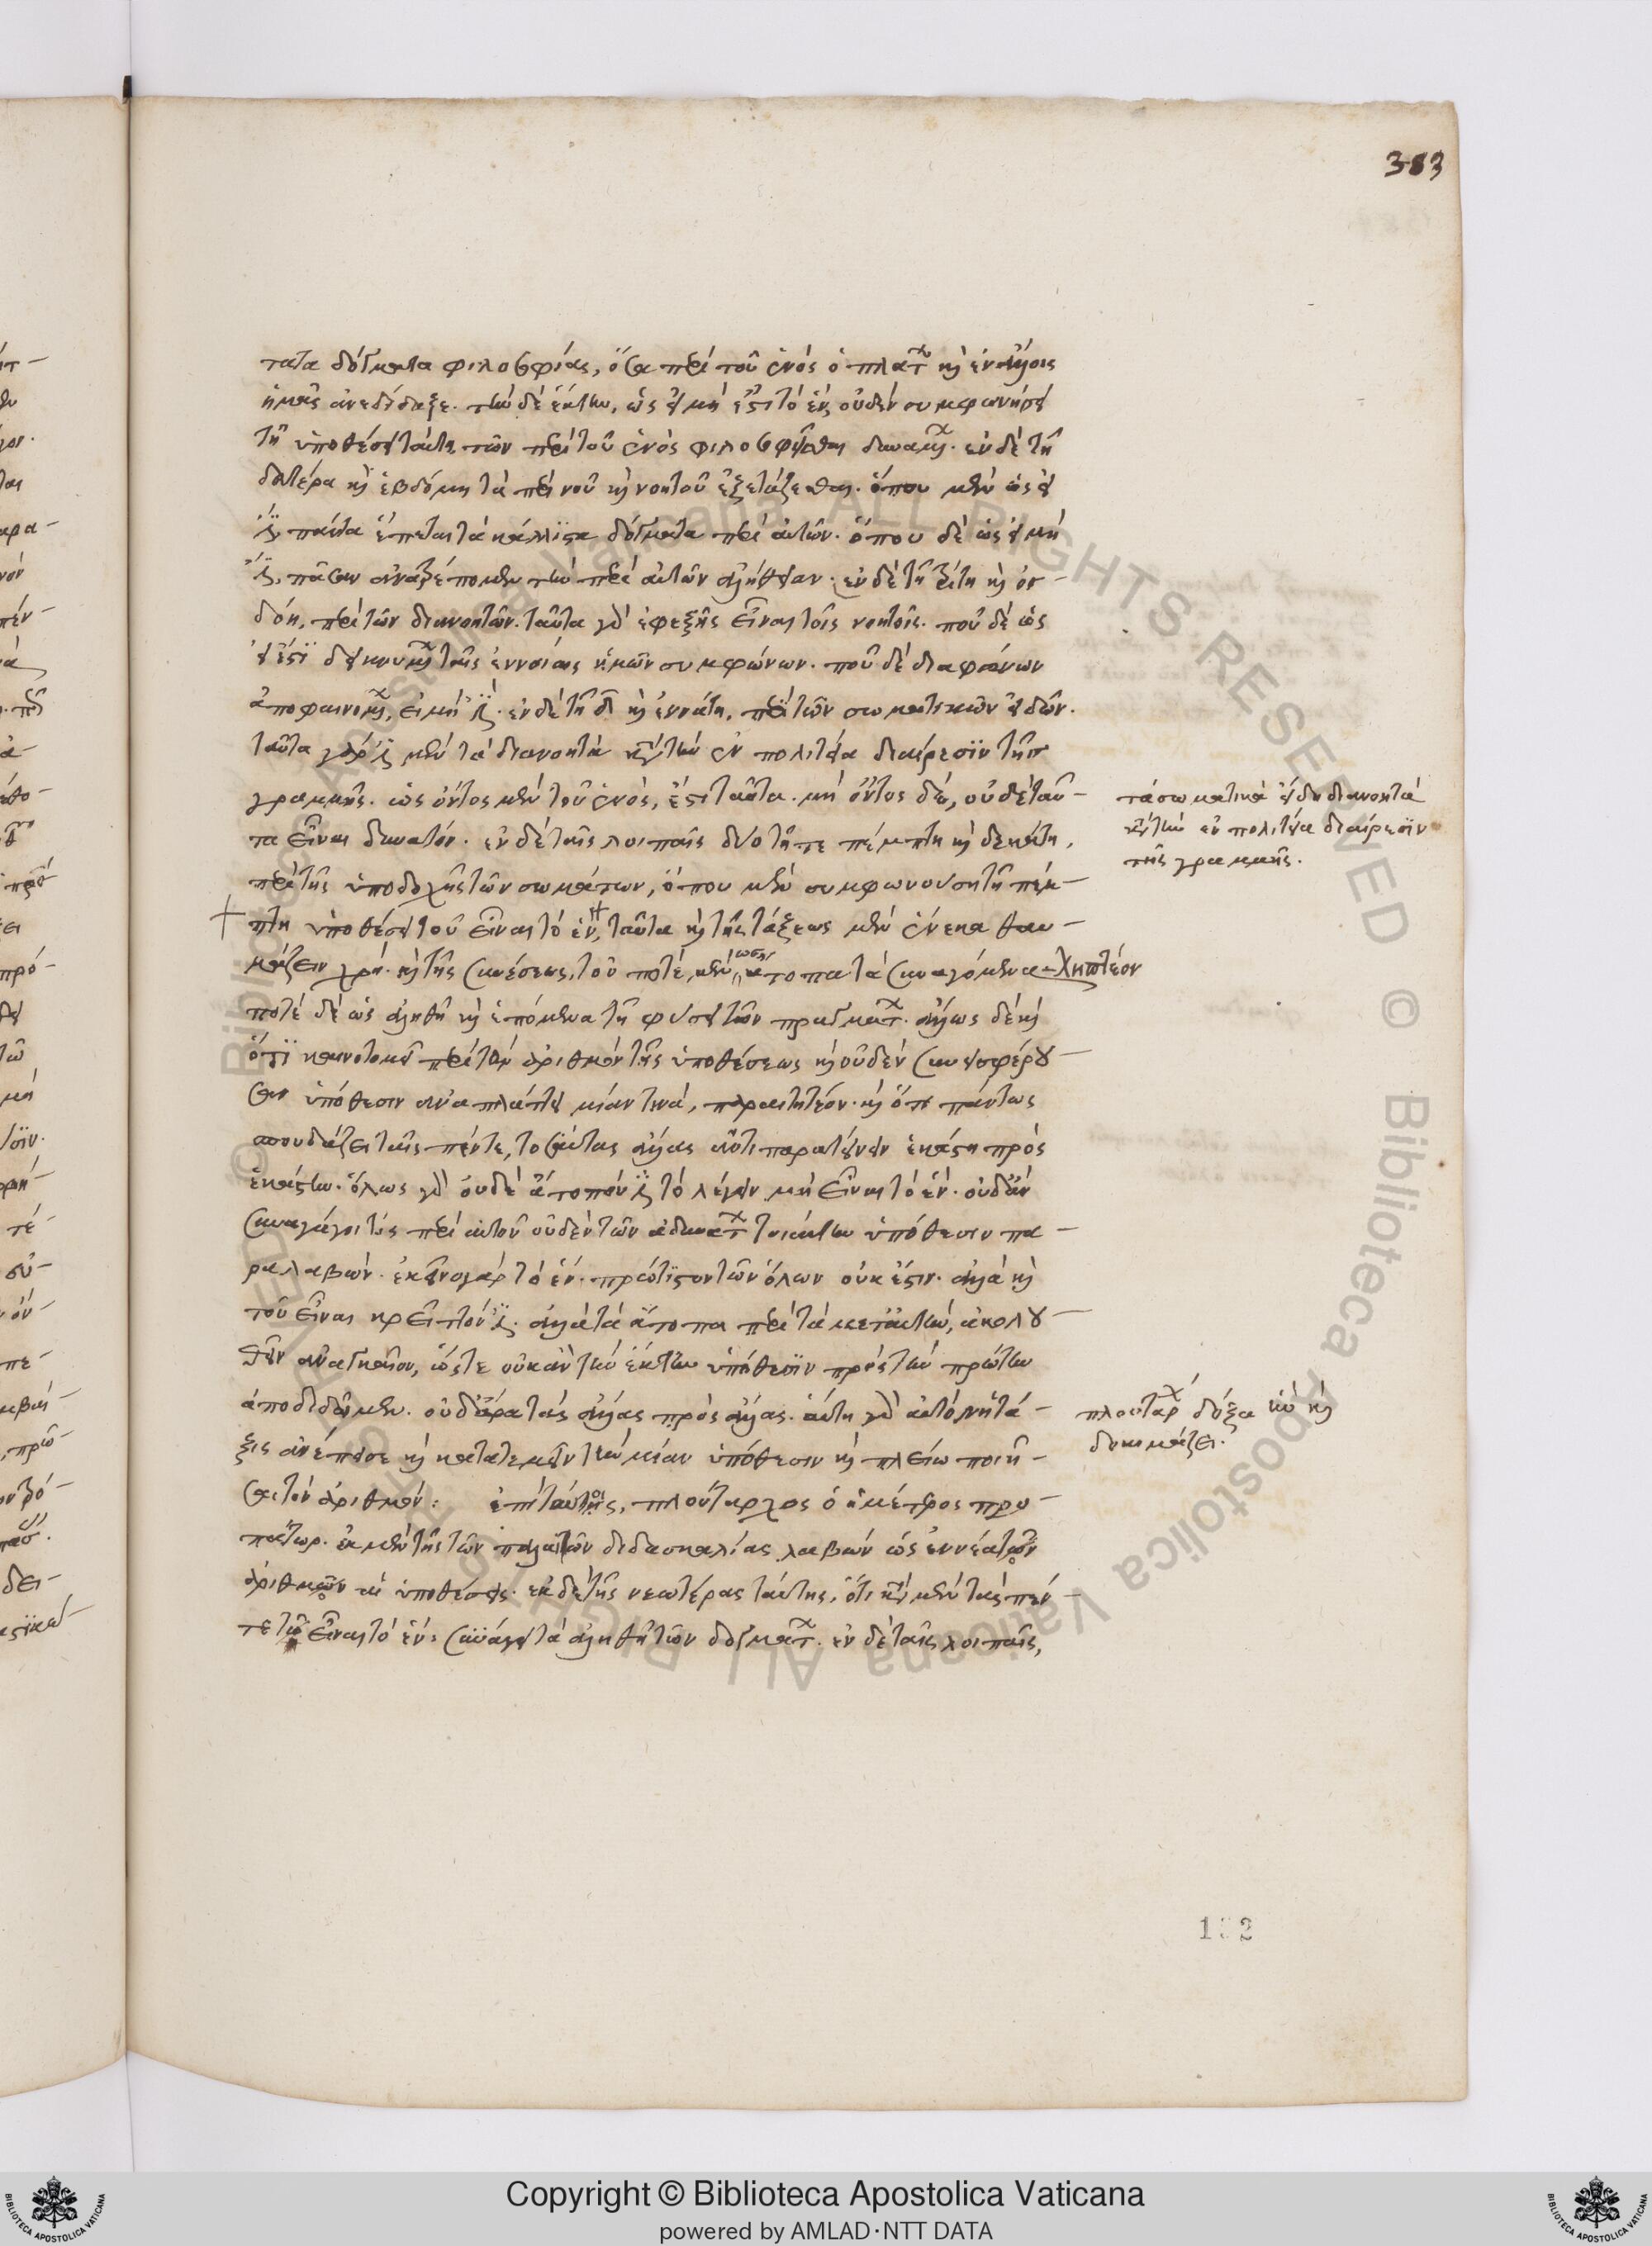 383
τατα δόγματα φιλοσοφίας, ὅσα περὶ τοῦ ἑνὸς ὁ πλατ καὶ ἐν ἄλλοις
ἡμᾶς ἀνεδίδαξε. τὴν δὲ ἕκτην, ὡς εἰ μή ἐστι τὸ ἓν, οὐδὲν συμφωνήσει
τῇ ὑποθέσει ταύτῃ τῶν περὶ τοῦ ἑνὸς φιλοσοφεῖσθαι δυναμ. ἐν δὲ τῇ
δευτέρα καὶ ἑβδόμη τὰ περὶ νοῦ καὶ νοητοῦ ἐξετάζεσθαι. ὅπου μὲν ὡς εἰ
ἔστι, πάντα ἕπεται τὰ κάλλιστα δόγματα περὶ αὐτῶν. ὅπου δὲ ὡς εἰ μὴ
ἔστι, πᾶσαν ἀνατρέπομεν τὴν περὶ αὐτῶν ἀλήθειαν. ἐν δὲ τῇ τρίτη καὶ ὀγ-
δόη, περὶ τῶν διανοητῶν. ταῦτα γὰρ ἐφεξῆς εἶναι τοῖς νοητοῖς. ποῦ δὲ ὡς
εἰ ἔστι δεικνυμ ταῖς ἐννοίαις ἡμῶν συμφώνων. ποῦ δὲ διαφώνων
ἀποφαινομ, εἰ μὴ ἔστι. ἐν δὲ τῇ δ καὶ ἐννάτη, περὶ τῶν σωματικῶν εἰδῶν.
ταῦτα γάρ ἐστι μετὰ τὰ διανοητὰ κατὰ τὴν ἐν πολιτεία διαίρεσιν τῆς
γραμμῆς. ὡς ὄντος μὲν τοῦ ἑνὸς, ἔστι ταῦτα. μὴ ὄντος δὲ, οὐδὲ ταῦ-
τα εἶναι δυνατόν. ἐν δὲ ταῖς λοιπαῖς δύο τῇ τε πέμπτη καὶ δεκάτη,
περὶ τῆς ὑποδοχῆς τῶν σωμάτων, ὅπου μὲν συμφωνούση τῇ πέμ-
πτη ὑποθέσει τοῦ εἶναι τὸ ἓν, ταῦτα καὶ τῆς τάξεως μὲν ἕνεκα θαυ-
μάζειν χρή. καὶ τῆς συνέσεως, τοῦ ποτὲ μὲν ὡς ἄτοπα τὰ συναγόμενα ληπτέον
ποτὲ δὲ ὡς ἀληθῆ καὶ ἑπόμενα τῇ φύσει τῶν πραγματ. ἄλλως δὲ καὶ
ὅτι καινοτομεῖ περὶ τὸν ἀριθμὸν τῆς ὑποθέσεως καὶ οὐδὲν συνεισφέρου-
σαν ὑπόθεσιν ἀναπλάττει μίαν τινά, παραιτητέον. καὶ ὅτι πάντως
σπουδάζει ταῖς πέντε, τοσαύτας ἄλλας ἀντιπαρατείνειν ἑκάστη πρὸς
ἑκάστην. ὅλως γὰρ οὐδὲ ἄτοπόν ἐστι τὸ λέγειν μὴ εἶναι τὸ ἕν. οὐδ' ἂν
συναγάγοι τις περὶ αὐτοῦ οὐδὲν τῶν ἀδυνατ τοιαύτην ὑπόθεσιν πα-
ραλαβών. ἐκεῖνο γὰρ τὸ ἓν. πρώτιστον τῶν ὅλων οὐκ ἔστιν. ἀλλὰ καὶ
τοῦ εἶναι κρεῖττόν ἐστι. ἀλλὰ τὰ ἄτοπα περὶ τὰ μετ' αὐτὴν, ἀκολου-
θεῖν ἀναγκαῖον, ὥστε οὐκ ἂν τὴν ἕκτην ὑπόθεσιν πρὸς τὴν πρώτην
ἀποδιδῶμεν. οὐδ' ἄρα τὰς ἄλλας πρὸς ἄλλας. αὕτη γὰρ αὐτὸν ἡ τά-
ξις ἀνέπεισε καὶ κατατεμεῖν τὴν μίαν ὑπόθεσιν καὶ πλείω ποιῆ-
σαι τὸν ἀριθμόν: ἐπὶ ταύταις, πλούταρχος ὁ ἡμέτερος προ-
πάτωρ. ἐκ μὲν τῆς τῶν παλαιῶν διδασκαλίας λαβὼν ὡς ἐννέα τῶν
ἀριθμῶν αἱ ὑποθέσεις. ἐκ δὲ τῆς νεωτέρας ταύτης, ὅτι κατὰ μὲν τὰς πέν
τε τῷ εἶναι τὸ ἕν: συνάγει τὰ ἀληθῆ τῶν δογματ. ἐν δὲ ταῖς λοιπαῖς,
τὰ σωματικὰ εἴδη διανοητὰ
κατὰ τὴν ἐν πολιτεία διαίρεσιν
τῆς γραμμῆς.
πλουταρχ δόξα ἣν καὶ
δοκιμάζει.
132